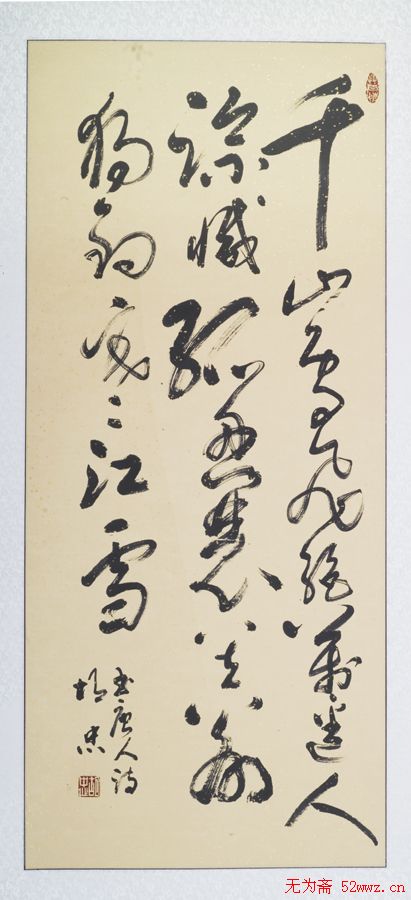 千山鳥飛絕萬逕人
踪滅孤舟蓑笠翁
獨釣寒江雪
書唐人詩
无为斋 52wwz.cn